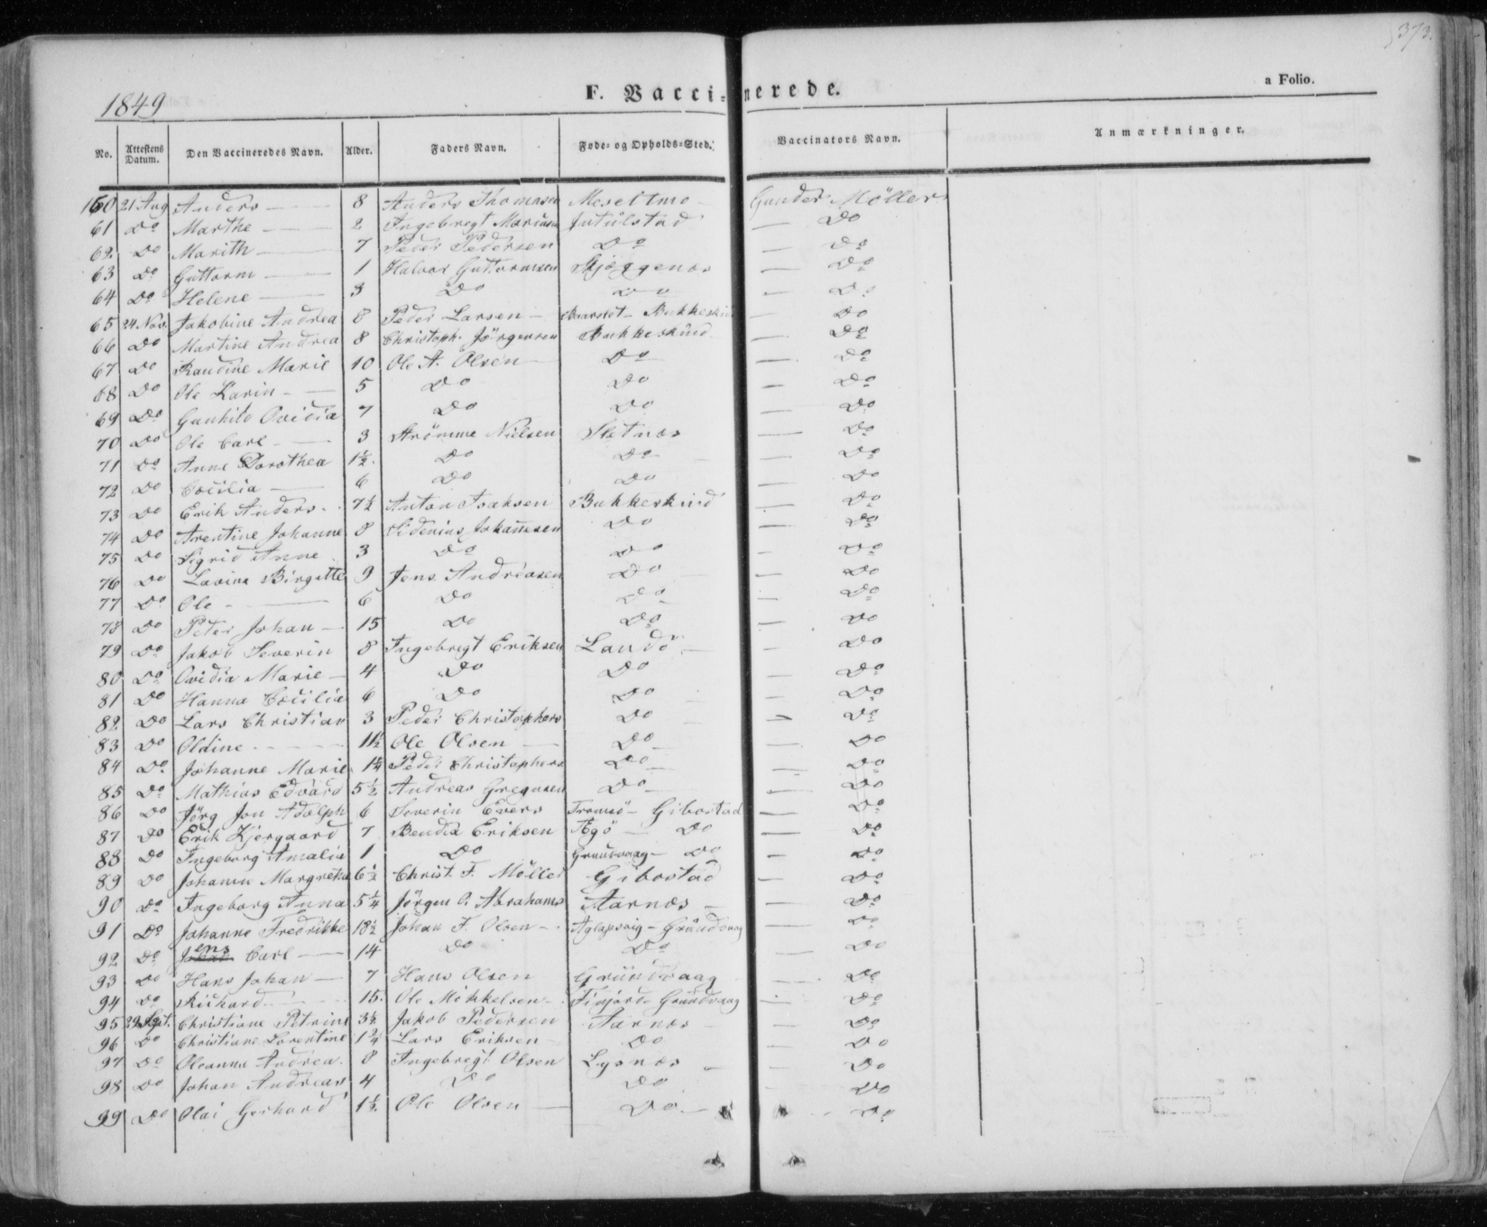 373.
1849 F. Vaccinerede. a Folio.
No. Attestens Datum. Den Vaccineredes Navn. Alder. Faders Navn. Føde- og Opholds-Sted. Vaccinators Navn. Anmærkninger.
160 21 Aug Anders 8 Anders Thomasen Meseltmo Gunder Möller
61 Do Marthe 2 Ingebregt Jutulstad Do
62. Do Marith 7 Peder Pedersen Do Do
63 Do Guttorm 1 Halvor Guttormsen Skjæggenæs Do
64 Do Helene 3 Do Do Do
65 24 Nov. Jakobine Andrea 8 Peder Larsen Bukkeskind Do
66 Do Martine Andrea 8 Christoph. Jörgensen Bukkeskind Do
67 Do Randine Marie 10 Ole A. Olsen Do Do
68 Do Ole Karin 5 Do Do Do
69 Do Gunhild Ovidia 7 Do Do Do
70 Do Ole Carl 3 Strömme Nielsen Sletnæs Do
71 Do Anne Dorothea 1½. Do Do Do
72 Do Cecilia 6 Do Do Do
73 Do Erik Anders 7½ Anton Isaksen Bukkeskind Do
74 Do Arentine Johanne 8 Sidenius Johannesen Do Do
75 Do Sigrid Anne 3 Do Do Do
76 Do Lavina Birgitte 9 Jens Andreasen Do Do
77 Do Ole 6 Do Do Do
78 Do Peter Johan 15 Do Do Do
79 Do Jakob Severin 8 Ingebregt Eriksen Landö Do
80 Do Ovidia Marie 4 Do Do Do
81 Do Hanna Cecilia 6 Do Do Do
82. Do Lars Christian 3 Peder Christophers Do Do
83 Do Oldine 1½ Ole Olsen Do Do
84 Do Johanne Marie 1¼ Peder Christophers Do Do
85 Do Mathias Edvard 5½ Andreas Gregusen Do Do
86 Do Jörg Jon Adolph 6 Severin Evers Tromsö - Gibostad Do
87 Do Erik Kjergaard 7 Bendix Eriksen Do Do
88 Do Ingeborg Amalia 1 Do Grundvaag - Do Do
89 Do Johanne Margretha 6½ Christ. F. Möller Gibostad Do
90 Do Ingeborg Anna 5¼ Jörgen A. Abrahams Aarnæs Do
91 Do Johanne Fredrikke 18½ Johan F. Olsen Aglapsvig - Grundvaag Do
92 Do Jens Carl 14 Do Do Do
93 Do Hans Johan 7 Hans Olsen Grundvaag Do
94 Do Richard 15. Ole Mikkelsen Finfjord - Grundvaag Do
95 29 Sept. Christiane Petrine 3½ Jakob Pedersen Aarnæs Do
96 Do Christiane Lorentine Lars Eriksen Do Do
97 Do Oleanna Andrea 8 Ingebregt Olsen Lysnæs Do
98 Do Johan Andreas 4 Do Do Do
99 Do Olai Gerhard 1½ Ole Olsen Do Do